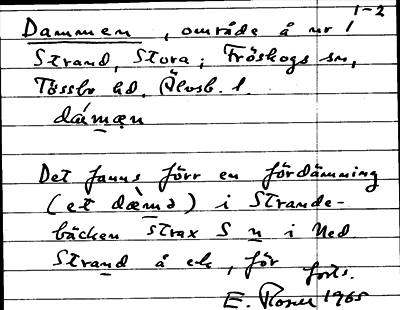 1-2
Dammen, område å nr 1
Strand, Stora; Fröskogs sn,
Tössbo hd, Älvsb. l.
dám̲æn
Det fanns förr en fördämning
(et dæ̀mə) i Strande-
bäcken strax S n i Ned
Strand å ek, för
forts.
E. Rosell 1965